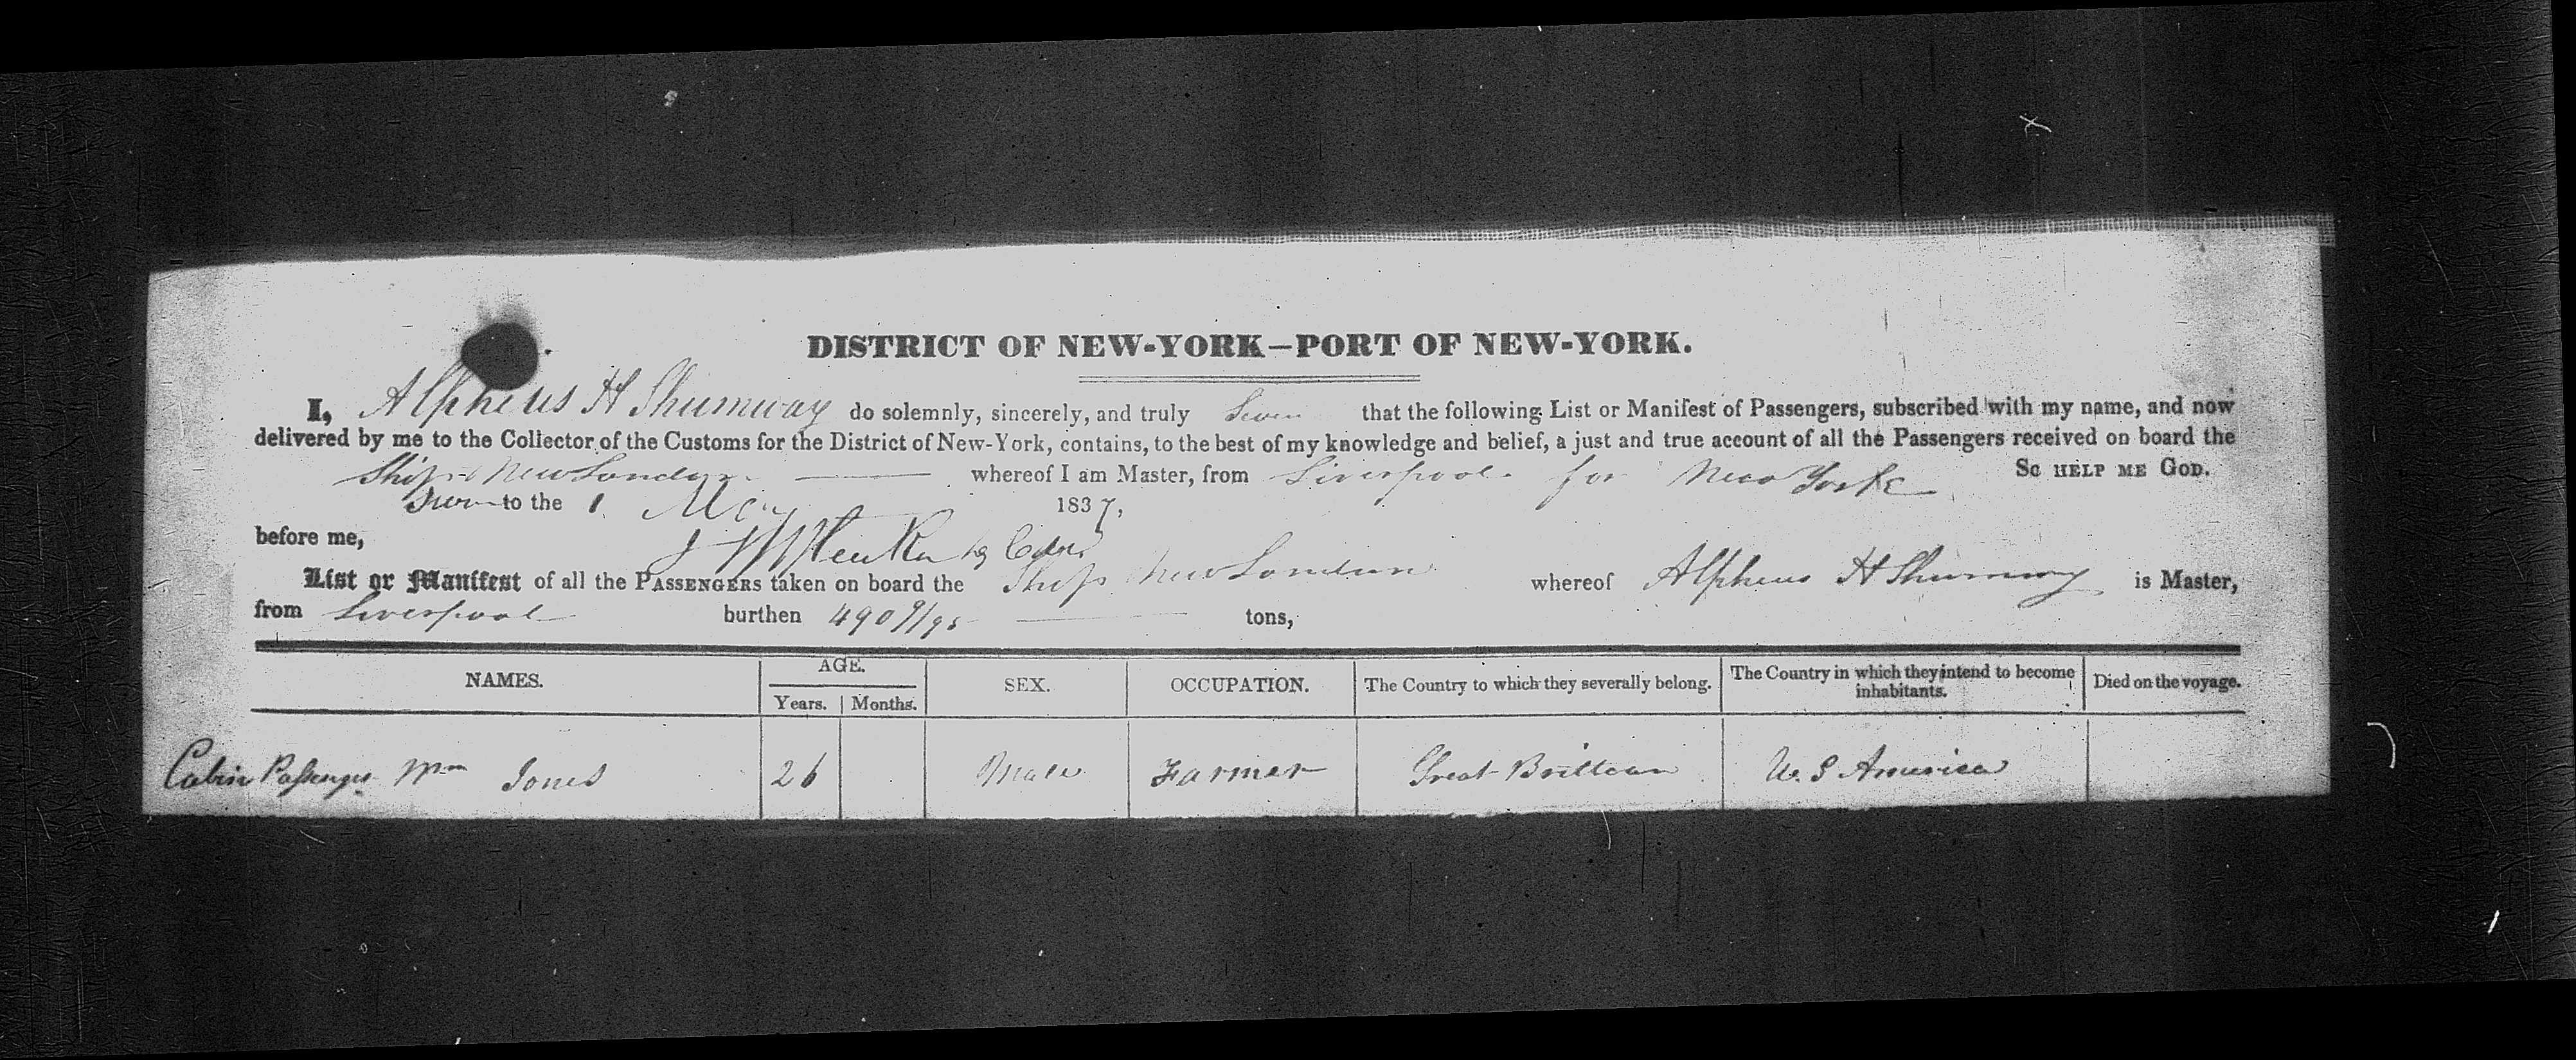 DISTRICT OF NEW-YORK—PORT OF NEW-YORK.
I, Alpheus H Shumway do solemnly, sincerely, and truly Swear that the following List or Manifest of Passengers, subscribed with my name, and now
delivered by me to the Collector of the Customs for the District of New-York, contains, to the best of my knowledge and belief, a just and true account of all the Passengers received on board the
Ship New London whereof I am Master, from Liverpool for New York So HELP ME GOD.
Sworn to the 1 May 1837,
before me,
List or Manifest of all the PASSENGERS taken on board the Ship New London whereof Alpheus H Shumway is Master,
from Liverpool burthen 490 9/95 tons,
NAMES. AGE. Years. Months. SEX. OCCUPATION. The Country to which they severally belong. The Country in which they intend to become inhabitants. Died on the voyage.
Cabin Passenger Wm Jones 26 Male Farmer Great Brittain U. S America